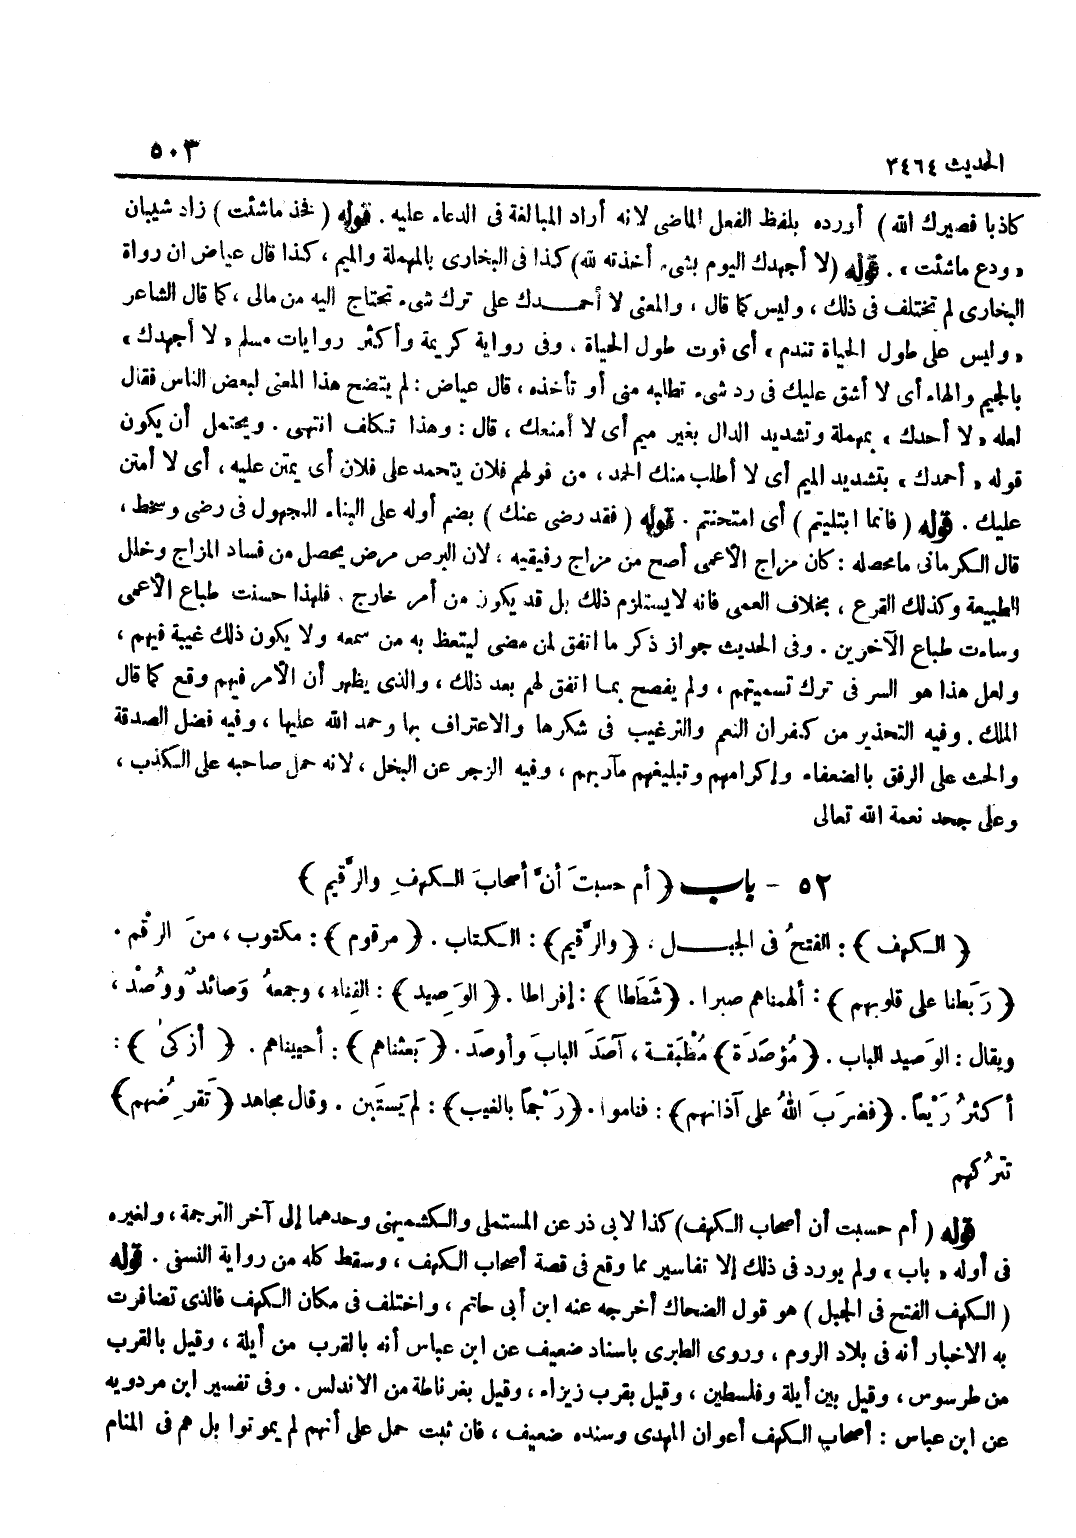 الحديث ٣٤٦٤
٥٠٣
كاذبا فصيرك الله ) أورده بلفظ الفعل الماضى لانه أراد المبالغة فى الدعاء عليه . قوله ( فخذ ماشئت ) زاد شيبان
« ودع ماشئت » . قوله (لا أجهدك اليوم بشىء أخذته لله) كذا فى البخارى بالمهملة والميم ، كذا قال عياض ان رواة
البخارى لم تختلف فى ذلك ، وليس كما قال ، والمعنى لا أحمدك على ترك شىء تحتاج اليه من مالى ، كما قال الشاعر
« وليس على طول الحياة تندم » أى فوت طول الحياة . وفى رواية كريمة وأكثر روايات مسلم « لا أجهدك »
بالجيم والهاء أى لا أشق عليك فى رد شىء تطلبه منى أو تأخذه ، قال عياض : لم يتضح هذا المعنى لبعض الناس فقال
لعله « لا أحدك » بمهملة وتشديد الدال بغير ميم أى لا أمنعك ، قال : وهذا تكلف انتهى . ويحتمل أن يكون
قوله « أحمدك » بتشديد الميم أى لا أطلب منك الحمد ، من قولهم فلان يتحمد على فلان أى يمتن عليه ، أى لا أمتن
عليك . قوله ( فانما ابتليتم ) أى امتحنتم . قوله ( فقد رضى عنك ) بضم أوله على البناء للمجهول فى رضى وسخط ،
قال الكرمانى مامحصله : كان مزاج الأعمى أصح من مزاج رفيقيه ، لان البرص مرض يحصل من فساد المزاج وخلل
الطبيعة وكذلك القرع ، بخلاف العمى فانه لايستلزم ذلك بل قد يكون من أمر خارج . فلهذا حسنت طباع الأعمى
وساءت طباع الآخرين . وفى الحديث جواز ذكر ما اتفق لمن مضى ليتعظ به من سمعه ولا يكون ذلك غيبة فيهم ،
ولعل هذا هو السر فى ترك تسميتهم ، ولم يفصح بما اتفق لهم بعد ذلك ، والذى يظهر أن الأمر فيهم وقع كما قال
الملك . وفيه التحذير من كفران النعم والترغيب فى شكرها والاعتراف بها وحمد الله عليها ، وفيه فضل الصدقة
والحث على الرفق بالضعفاء وإكرامهم وتبليغهم مآربهم ، وفيه الزجر عن البخل ، لانه حمل صاحبه على الكذب ،
وعلى جحد نعمة الله تعالى
٥٢ - باب ﴿ أم حسبتَ أنَّ أصحابَ الكهفِ والرَّقيم ﴾
﴿ الكهف ﴾ : الفتحُ فى الجبل ، ﴿ والرَّقيم ﴾ : الكتاب . ﴿ مرقوم ﴾ : مكتوب ، منَ الرقْم .
﴿ رَبَطنا على قلوبهم ﴾ : ألهمناهم صبرا . ﴿ شَطَطا ﴾ : إفراطا . ﴿ الوَصيد ﴾ : الفِناء ، وجمعهُ وَصائدُ ووُصُدْ ،
ويقال : الوَصيد الباب . ﴿ مُؤصَدَة ﴾ مُطْبَقة ، آصَدَ البابَ وأوصَدَ . ﴿ بَعثناهم ﴾ : أحييناهم . ﴿ أزكىٰ ﴾ :
أكثرُ رَيْعاً . ﴿ فضرَبَ اللهُ على آذانهم ﴾ : فناموا . ﴿ رَجْماً بالغيب ﴾ : لم يَستَبِن . وقال مجاهد ﴿ تَقرِضُهم ﴾
تترُكهم
قوله ( أم حسبت أن أصحاب الكهف) كذا لابى ذر عن المستملى والكشميهنى وحدهما إلى آخر الترجمة ، ولغيره
فى أوله « باب » ولم يورد فى ذلك إلا تفاسير مما وقع فى قصة أصحاب الكهف ، وسقط كله من رواية النسفى . قوله
( الكهف الفتح فى الجبل ) هو قول الضحاك أخرجه عنه ابن أبى حاتم ، واختلف فى مكان الكهف فالذى تضافرت
به الاخبار أنه فى بلاد الروم ، وروى الطبرى باسناد ضعيف عن ابن عباس أنه بالقرب من أيلة ، وقيل بالقرب
من طرسوس ، وقيل بين أيلة وفلسطين ، وقيل بقرب زيزاء ، وقيل بغرناطة من الاندلس . وفى تفسير ابن مردويه
عن ابن عباس : أصحاب الكهف أعوان المهدى وسنده ضعيف ، فان ثبت حمل على أنهم لم يموتوا بل هم فى المنام